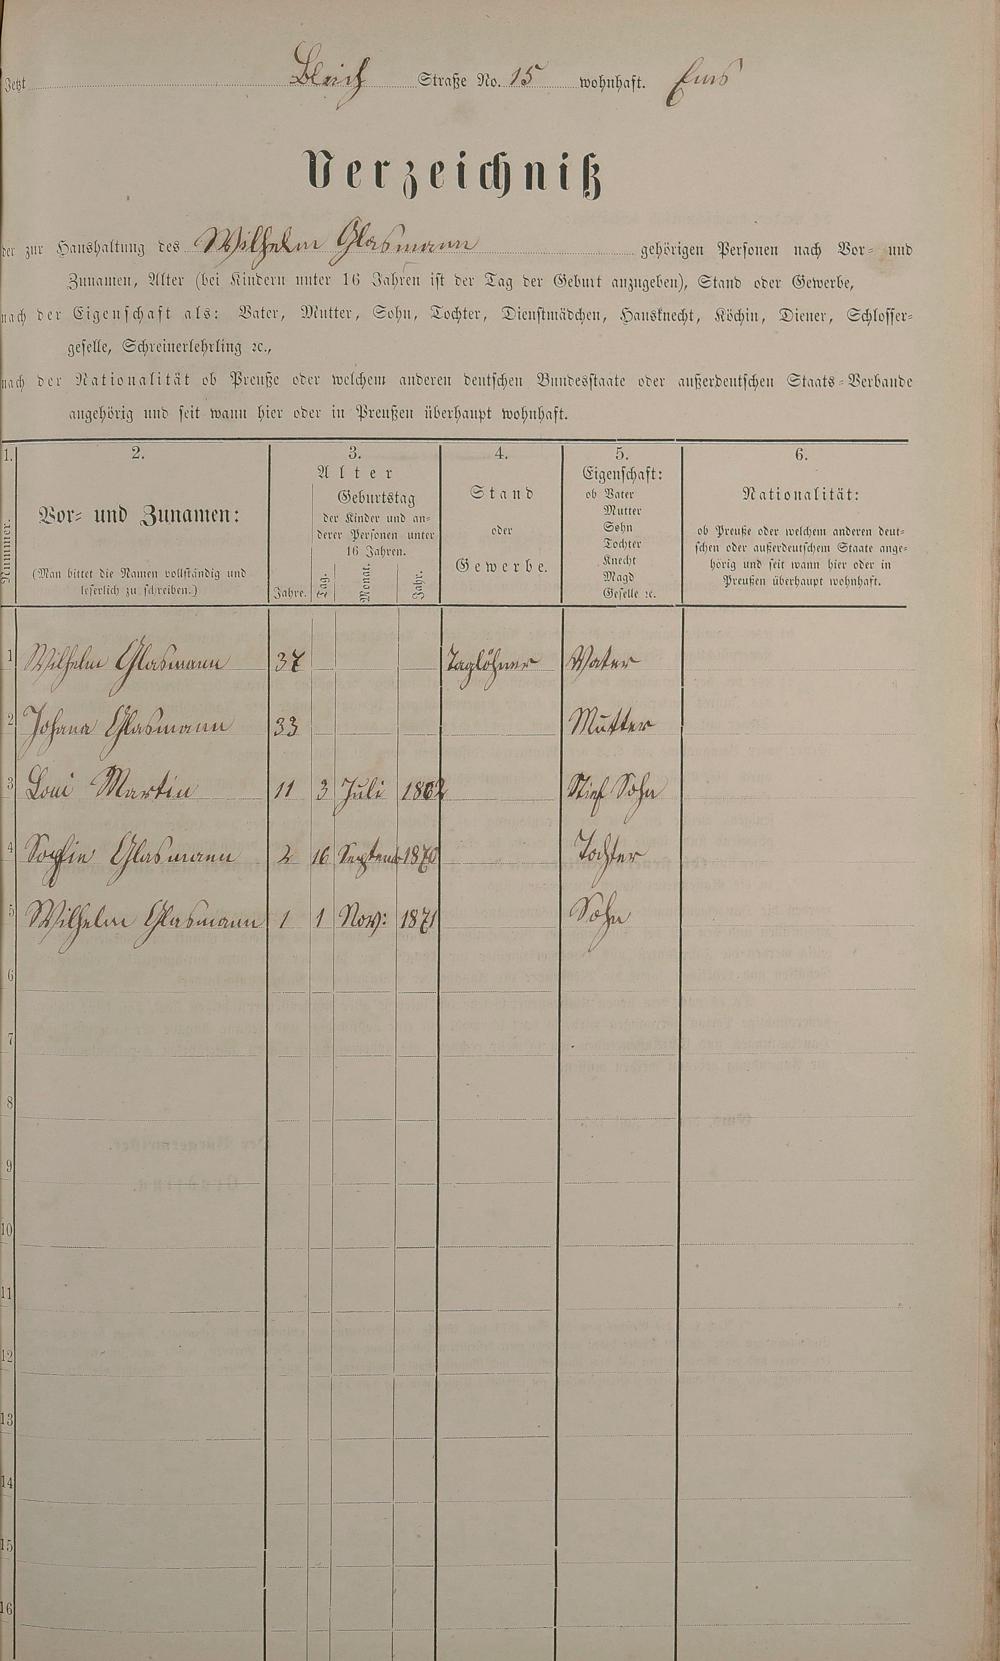 Jetzt Bleich Straße No. 15 wohnhaft. Ems
Verzeichniß
der zur Haushaltung des Wilhelm Glasmann gehörigen Personen nach Vor- und
Zunamen, Alter (bei Kindern unter 16 Jahren ist der Tag der Geburt anzugeben), Stand oder Gewerbe,
nach der Eigenschaft als: Vater, Mutter, Sohn, Tochter, Dienstmädchen, Hausknecht, Köchin, Diener, Schlosser-
geselle, Schreinerlehrling ꝛc.,
nach der Nationalität ob Preuße oder welchem anderen deutschen Bundesstaate oder außerdeutschen Staats-Verbande
angehörig und seit wann hier oder in Preußen überhaupt wohnhaft.
1. 2. 3. 4. 5. 6.
Nummer.
Vor- und Zunamen:
(Man bittet die Namen vollständig und
leserlich zu schreiben.)
Alter
Jahre.
Geburtstag
der Kinder und an-
derer Personen unter
16 Jahren.
Tag. Monat. Jahr.
Stand
oder
Gewerbe.
Eigenschaft:
ob Vater
Mutter
Sohn
Tochter
Knecht
Magd
Geselle ꝛc.
Nationalität:
ob Preuße oder welchem anderen deut-
schen oder außerdeutschem Staate ange-
hörig und seit wann hier oder in
Preußen überhaupt wohnhaft.
1 Wilhelm Glasmann 37 Taglöhner Vater
2 Johana Glasmann 33 Mutter
3 Loui Martin 11 3 Juli 1862 Stief Sohn
4 Sophie Glasmann 2 16 Septem 1870 Tochter
5 Wilhelm Glasmann 1 1 Nov: 1871 Sohn
6
7
8
9
10
11
12
13
14
15
16